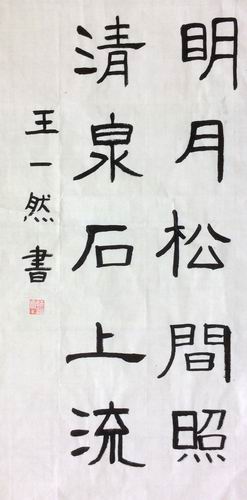 明月松間照
清泉石上流
王一然書